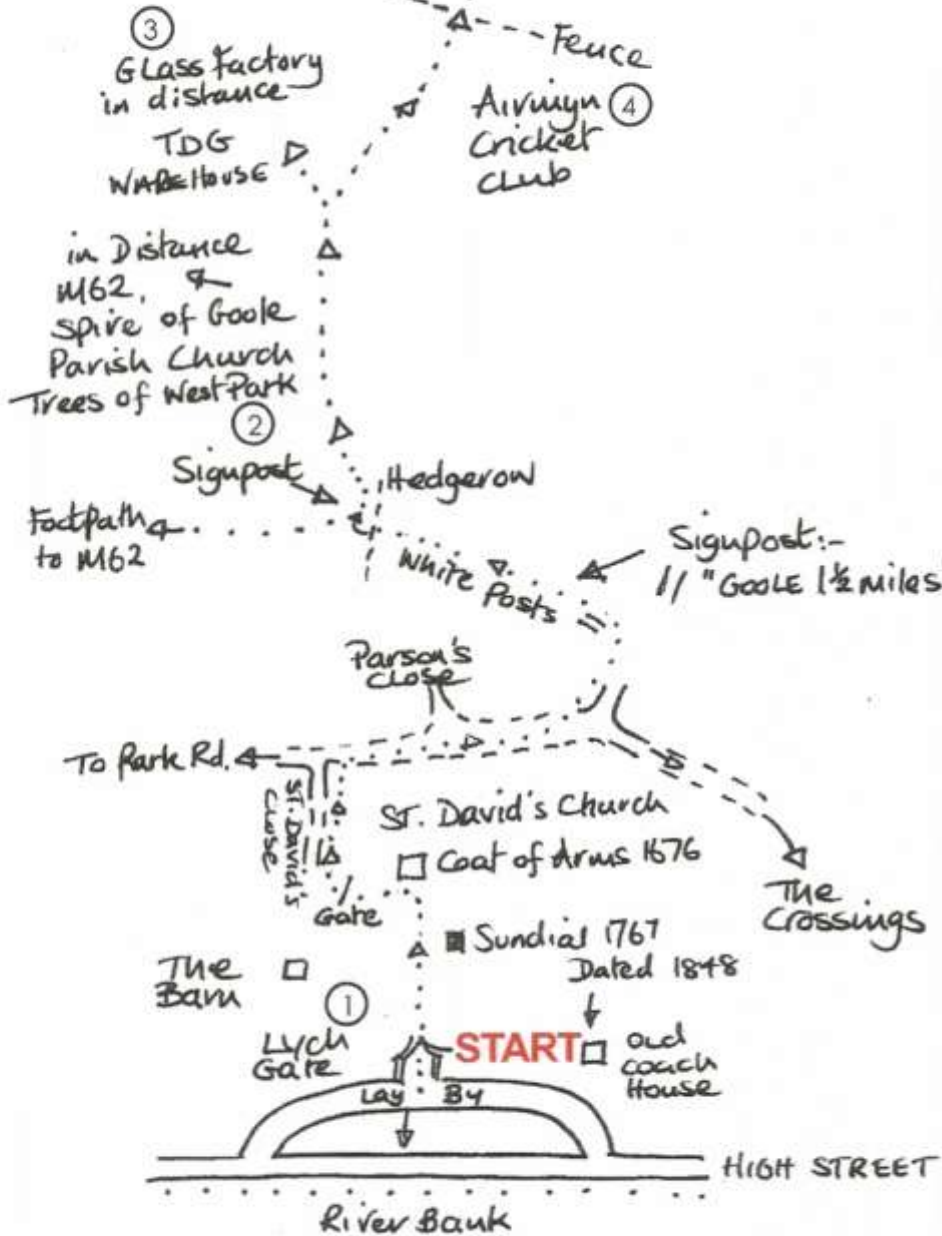 3
Glass Factory
in distance
Fence
Airmyn
Cricket
Club
4
TDG
WAREHOUSE
in Distance
M62,
Spire of Goole
Parish Church
Trees of West Park
2
Signpost
Hedgerow
Footpath
to M62
White Posts
Signpost:-
// "GOOLE 1½ Miles
Parson's
CLOSE
To Park Rd.
ST. David's
CLOSE
ST. David's Church
Coat of Arms 1676
The
Crossings
Gate
Sundial 1767
Dated 1848
The
Barn
1
Lych
Gate
START
Old
Coach
House
Lay By
HIGH STREET
River Bank